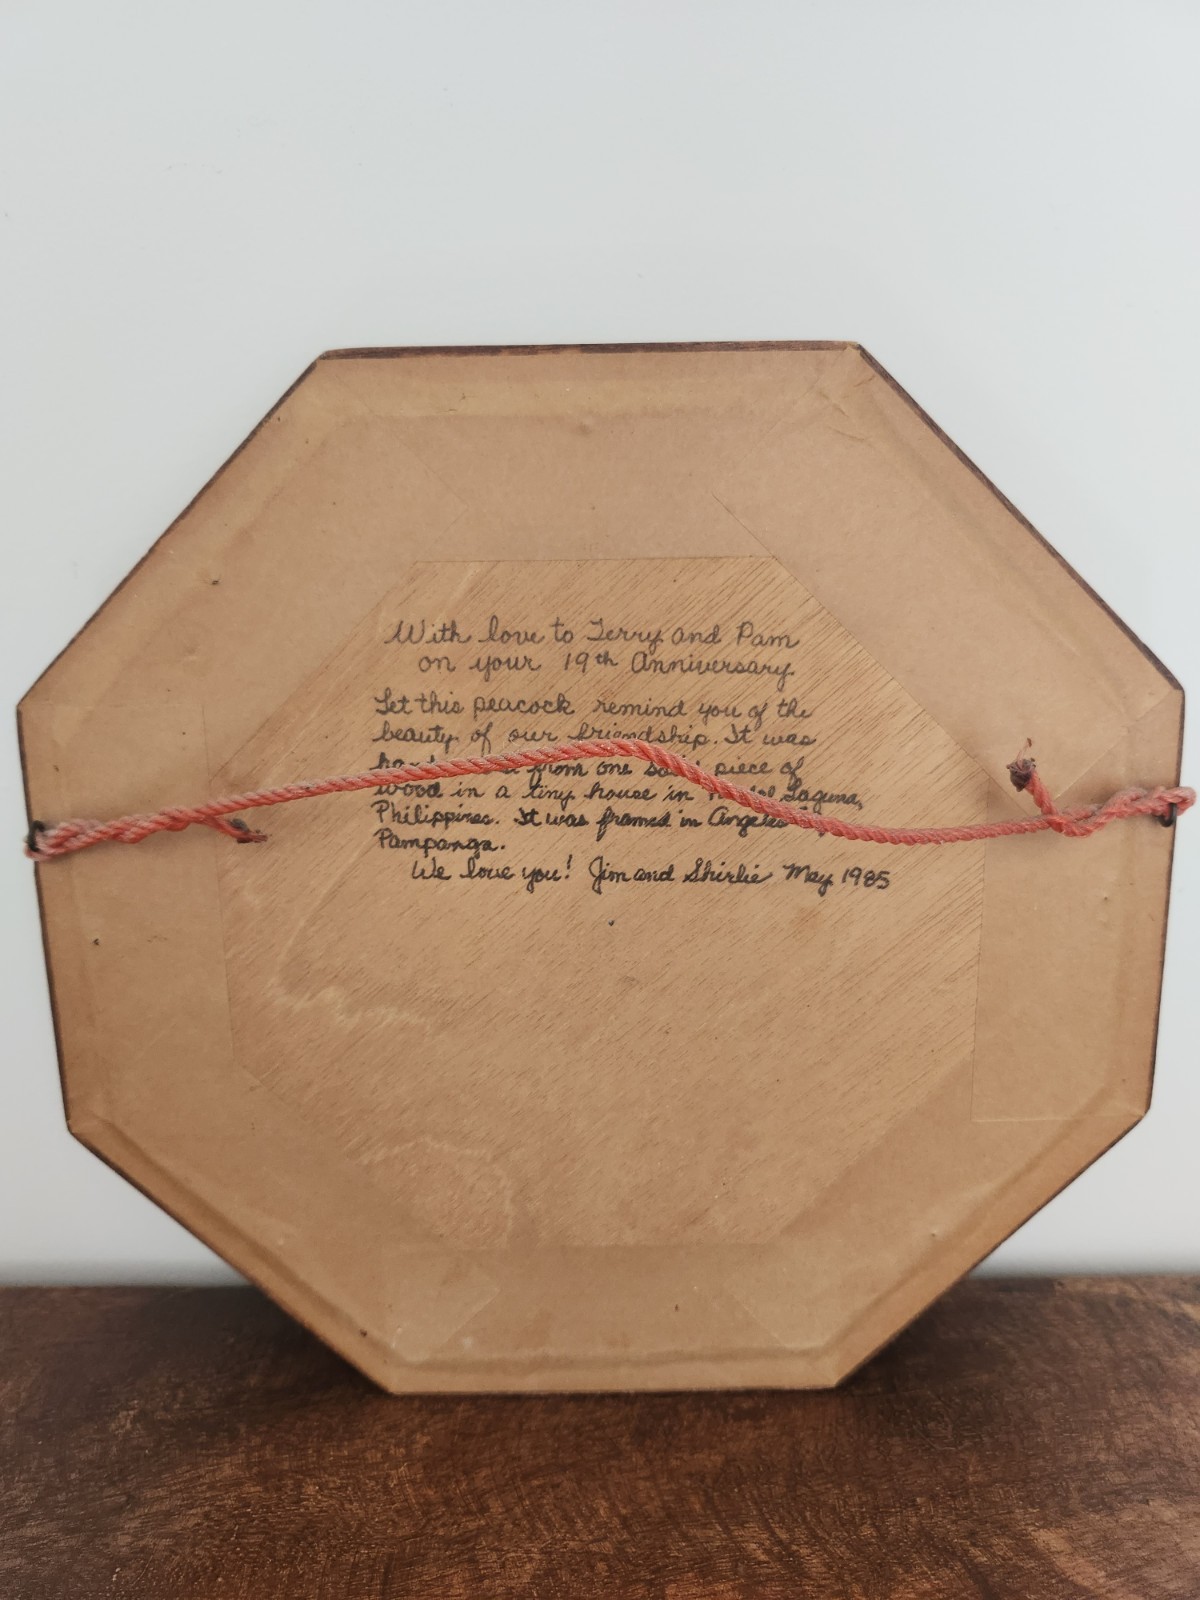 With love to Terry and Pam
on your 19th Anniversary
Let this peacock remind you of the
beauty of our friendship. It was
from one solid piece of
wood in a tiny house in Laguna,
Philippines. It was framed in Angeles
Pampanga.
We love you! Jim and Shirlie May 1985